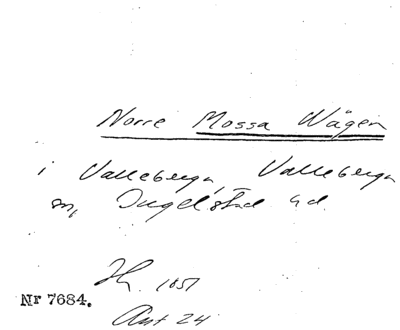 Norre Mossa Wägen
i Valleberga, Valleberga
sn, Ingelstad hd.
1857
Nr 7684.
Ant 24